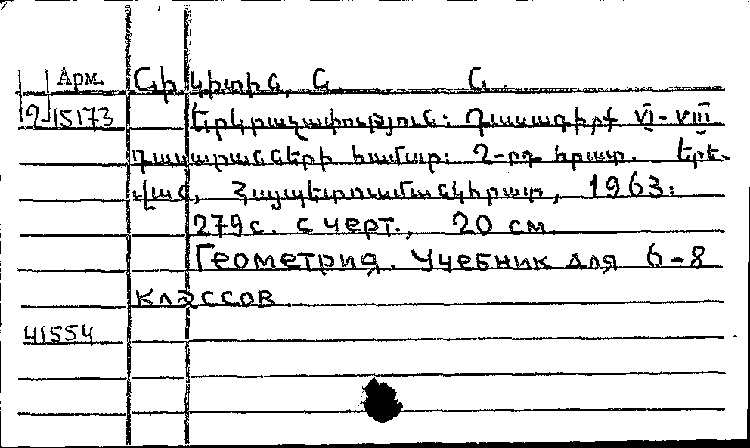 Арм. Նիկիտին, Ն. Ն.
2-15173 Երկրաչափություն: Դասագիրք VI-VIII
դասարանների համար: 2-րդ հրատ. Երե-
վան, Հայպետուսմանկհրատ, 1963:
279с. с черт., 20 см.
Геометрия. Учебник для 6-8
классов
41554